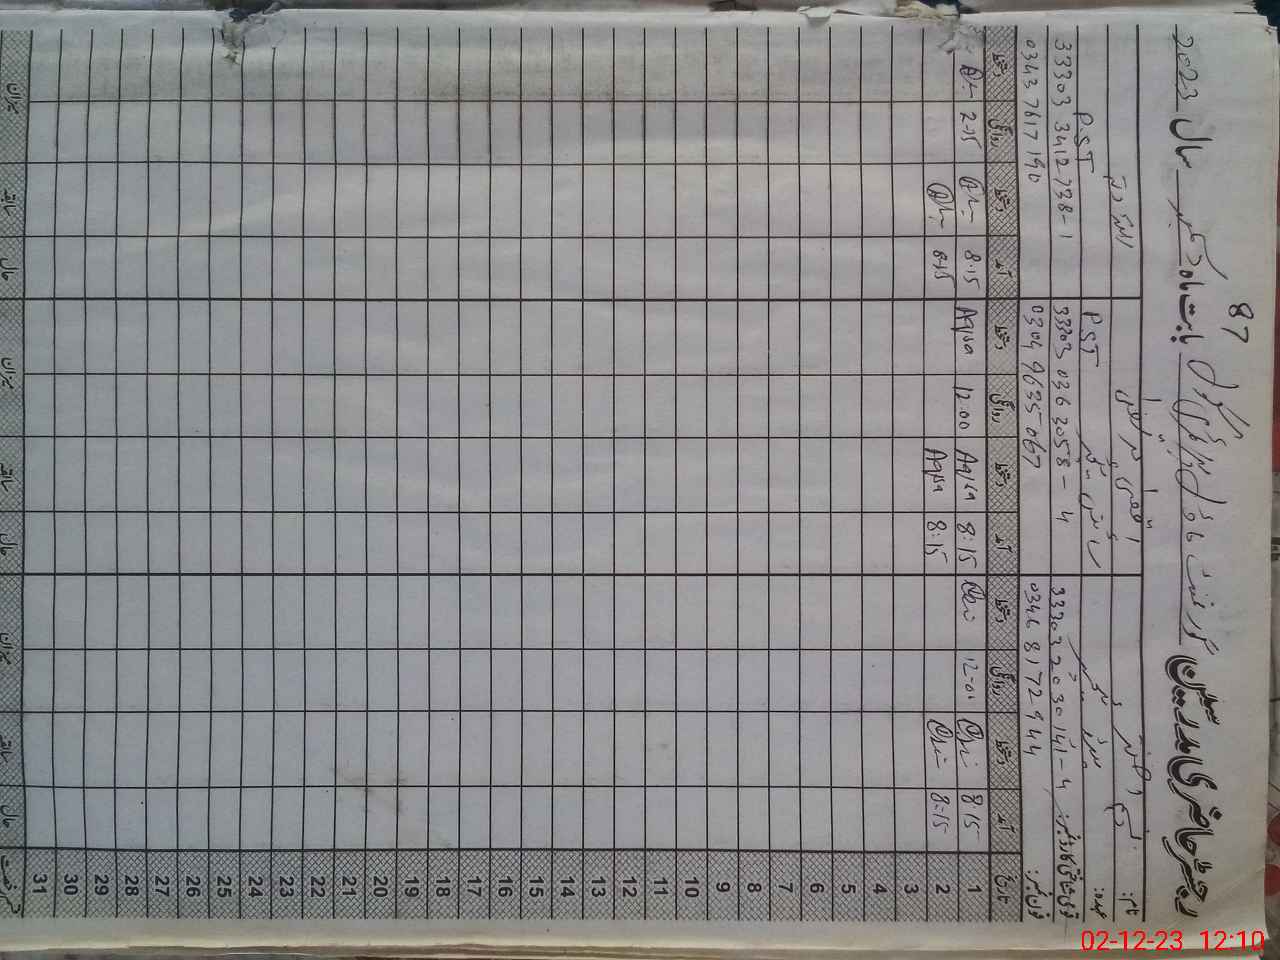 87
رجسٹر حاضری مدرسین گورنمنٹ ماڈل پرائمری سکول بابت ماہ دسمبر سال 2023
نام:
عہدہ: PST PST
قومی شناختی کارڈ نمبر: 33303 2030141-4 33303 0363058-4 33303 3412738-1
فون نمبر: 0346 8172944 0304 9635067 0343 7617190
تاریخ آمد دستخط روانگی دستخط آمد دستخط روانگی دستخط آمد دستخط روانگی دستخط
1 8:15 12-00 8:15 Aqsa 12:00 Aqsa 8:15 2-15
2 8=15 8:15 Aqsa 8:15
3
4
5
6
7
8
9
10
11
12
13
14
15
16
17
18
19
20
21
22
23
24
25
26
27
28
29
30
31
حال سابقہ میزان حال سابقہ میزان حال سابقہ میزان
02-12-23 12:10